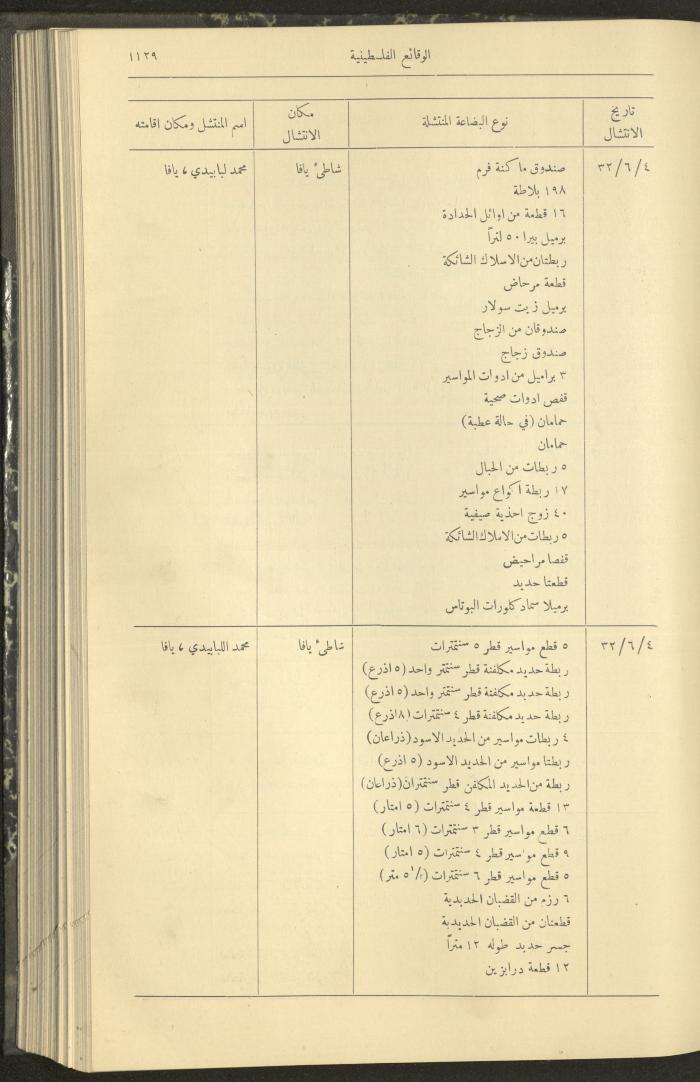 الوقائع الفلسطينية ١١٢٩
تاريخ الانتشال نوع البضاعة المنتشلة مكان الانتشال اسم المنتشل ومكان اقامته
٣٢/٦/٤ صندوق ماكنة فرم شاطئ يافا محمد لبابيدي ، يافا
١٩٨ بلاطة
١٦ قطعة من اوائل الحدادة
برميل بيرا ٥٠ لتراً
ربطتان من الاسلاك الشائكة
قطعة مرحاض
برميل زيت سولار
صندوقان من الزجاج
صندوق زجاج
٣ براميل من ادوات المواسير
قفص ادوات صحية
حمامان (في حالة عطبة)
حمامان
٥ ربطات من الحبال
١٧ ربطة اكواع مواسير
٤٠ زوج احذية صيفية
٥ ربطات من الاسلاك الشائكة
قفصا مراحيض
قطعتا حديد
برميلا سماد كلورات البوتاس
٣٢/٦/٤ ٥ قطع مواسير قطر ٥ سنتمترات شاطئ يافا محمد اللبابيدي ، يافا
ربطة حديد مكلفنة قطر سنتمتر واحد (٥ اذرع)
ربطة حديد مكلفنة قطر سنتمتر واحد (٥ اذرع)
ربطة حديد مكلفنة قطر ٤ سنتمترات (٨ اذرع)
٤ ربطات مواسير من الحديد الاسود (ذراعان)
ربطتا مواسير من الحديد الاسود (٥ اذرع)
ربطة من الحديد المكلفن قطر سنتمتران (ذراعان)
١٣ قطعة مواسير قطر ٤ سنتمترات (٥ امتار)
٦ قطع مواسير قطر ٣ سنتمترات (٦ امتار)
٩ قطع مواسير قطر ٤ سنتمترات (٥ امتار)
٥ قطع مواسير قطر ٦ سنتمترات (٥١/٢ متر)
٦ رزم من القضبان الحديدية
قطعتان من القضبان الحديدية
جسر حديد طوله ١٢ متراً
١٢ قطعة درابزين